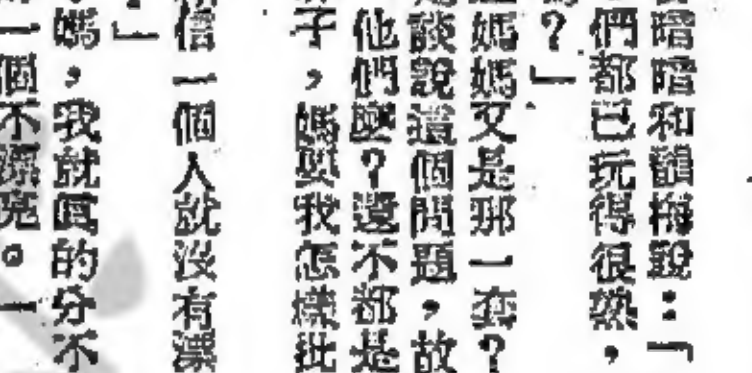 暗暗和韻梅說：「
們都已玩得很熟，
？」
媽媽又是那一套？
談說這個問題，故
他們麼？還不都是
子，媽要我怎樣批
信一個人就沒有漂
」
媽，我就真的分不
一個不漂亮。